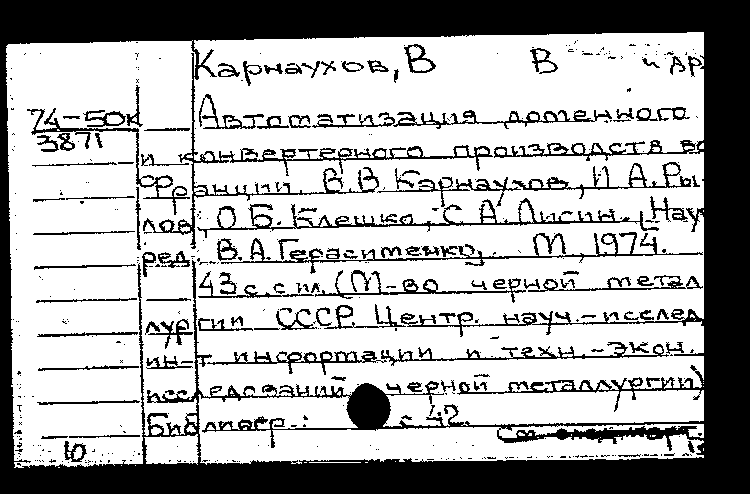 Карнаухов, В В и др.
74-50к
3871
Автоматизация доменного
и конвертерного производств во
Франции. В.В. Карнаухов, И А. Ры-
лов, О Б. Клешко, С А. Лисин. [Науч
ред. В.А. Герасименко]. М, 1974.
43 с. с ил. (М-во черной метал
лургии СССР. Центр. науч.-исслед
ин-т информации и техн.-экон.
исследований черной металлургии)
Библиогр.: с 42.
10